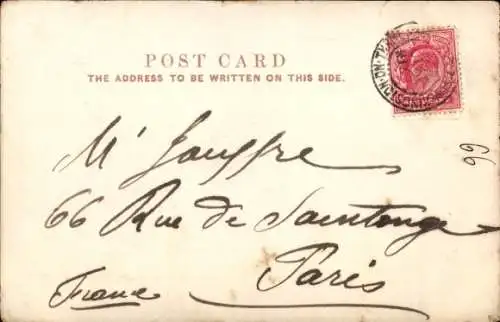 POST CARD
THE ADDRESS TO BE WRITTEN ON THIS SIDE.
Mr Jouffre
66 Rue de Saintonge
Paris
France
66